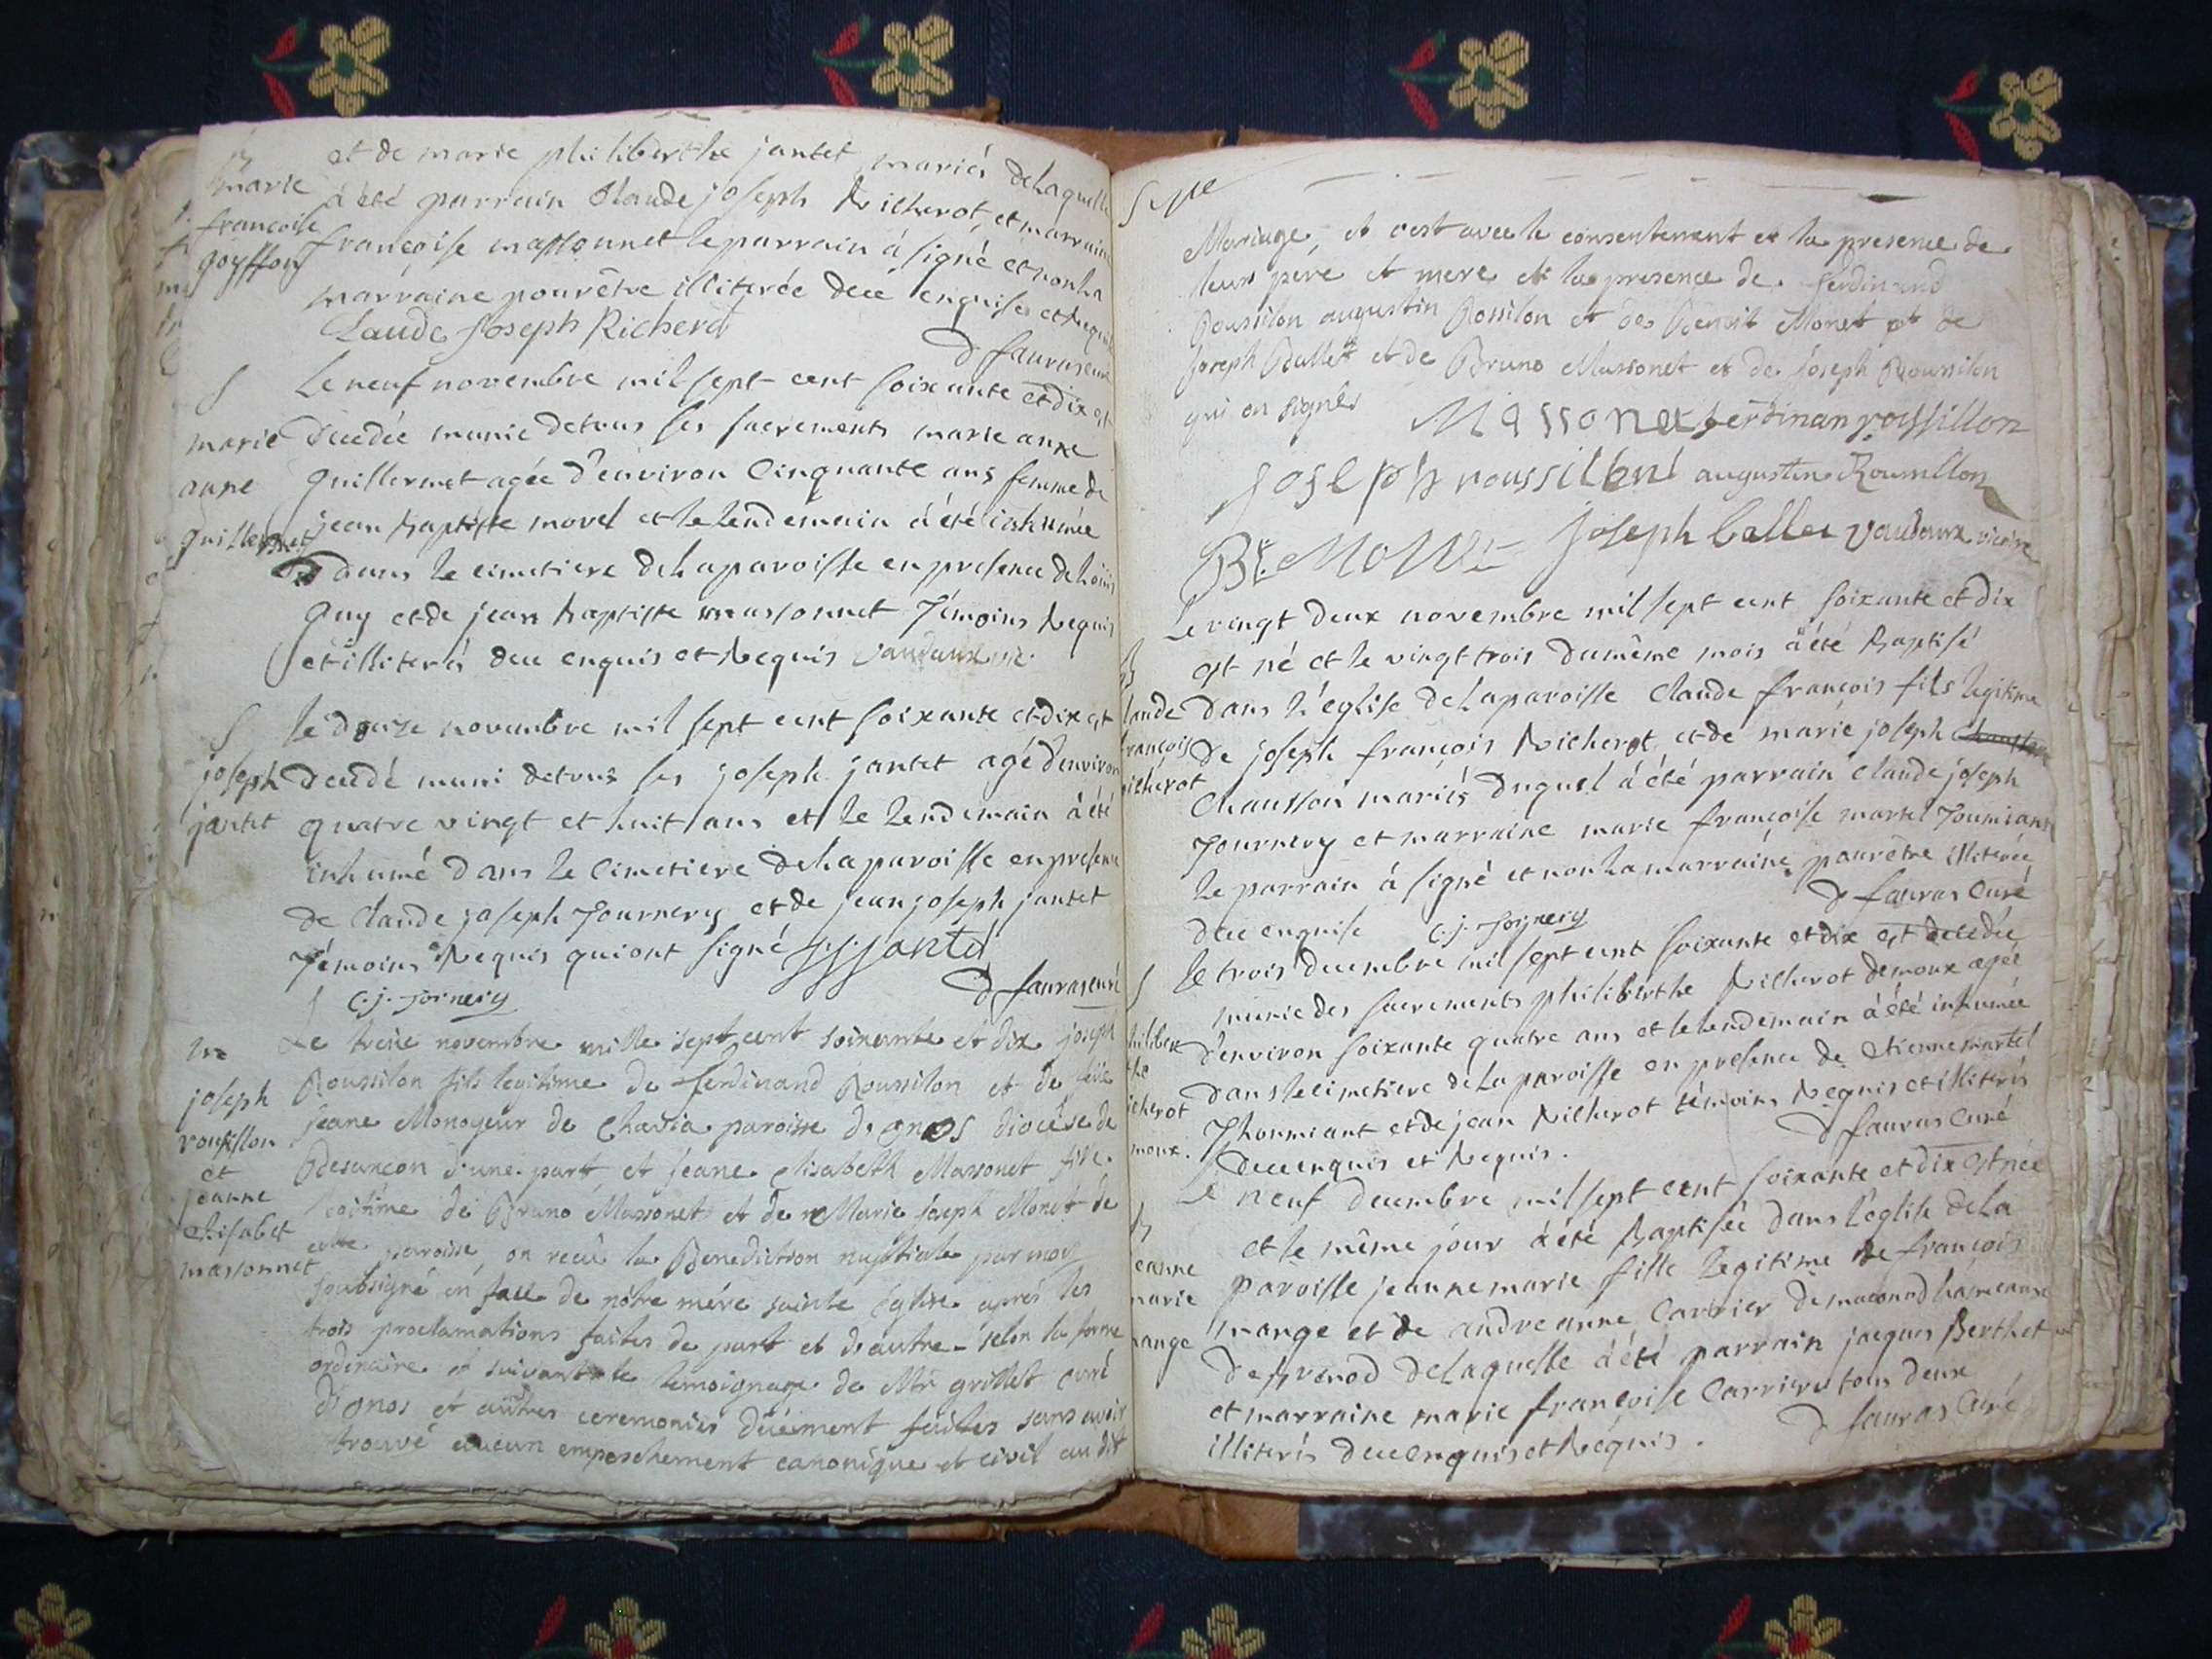 et de marie philiberthe jantet mariés de laquelle
B
marie
françoise
goyffon
à été parrain Claude joseph Richerot, et marraine
françoise massonnet le parrain à signé et non la
marraine pour être illiterée de ce enquise et Requise
Claude Joseph Richerd
D fauras curé
S
marie
anne
guillermet
Le neuf novembre mil sept cent soixante et dix est
decedée munie de tous ses sacrements marie anne
guillermet agée d'environ Cinquante ans femme de
jean baptiste morel et le lendemain à été inhumée
dans le cimetiere de la paroisse en presence de Loüis
guy et de jean baptiste massonnet Témoins Requis
et illiterés de ce enquis et Requis Vaudaux vic.
S
joseph
jantet
le douze novembre mil sept cent soixante et dix est
decedé muni de tous ses joseph jantet agé d'environ
quatre vingt et huit ans et le lendemain à été
inhumé dans le cimetiere de la paroisse en presence
de Claude joseph Tournery et de jean joseph jantet
Témoins Requis qui ont signé j j jantet
C. j. Tornery
D fauras curé
m
joseph
roussillon
et
jeanne
elisabet
massonnet
Le treise novembre mille sept cent soixante et dix joseph
Roussilon fils legitime de ferdinand Roussilon et de feüe
jeane Monoyeur de Chavia paroisse d'gnos diocése de
Besancon d'une part, et jeane elisabeth Massonet fille
legitime de Bruno Massonet et de Marie joseph Monet de
cette paroisse, on recû la Benediction nuptiale par moy
soubsigné en face de nôtre mére sainte église aprés les
trois proclamations faites de part et d'autre selon la forme
ordinaire et suivant le temoignage de Mr grillet curé
d'gnos et autres ceremonies dûement faites sans avoir
trouvé aucun empeschement canonique et civil au dit
Mariage, et c'est avec le consentement et la presence de
leurs pere et mere et la presence de ferdinand
Roussilon augustin Rossilon et de Benoit Monet et de
joseph Ballet et de Bruno Massonet et de joseph Roussilon
qui on signés
Massonet ferdinan roussillon
joseph roussillon augustin Roussillon
Bt Monet joseph ballet Vaudaux vicaire
B
laude
françois
icherot
Le vingt deux novembre mil sept cent soixante et dix
est né et le vingt trois du même mois à été baptisé
dans l'église de la paroisse Claude françois fils legitime
de joseph françois Richerot et de marie joseph
Chausson mariés duquel à été parrain claude joseph
Tournery et marraine marie françoise martel Toumiant
le parrain à signé et non la marraine pour être illiterée
de ce enquise C. j. Tornery
D fauras Curé
S
hiliber
the
icherot
moux.
le trois decembre mil sept cent soixante et dix est decedée
munie des sacrements philiberthe Richerot demoux agée
d'environ soixante quatre ans et le lendemain à été inhumée
dans le cimetiere de la paroisse en presence de Etienne martel
Thoumiant et de jean Richerot témoins Requis et illiterés
de ce enquis et Requis.
D fauras Curé
B
eanne
marie
mange
Le neuf decembre mil sept cent soixante et dix est née
et le même jour à été baptisée dans l'église de la
paroisse jeanne marie fille legitime de françois
mange et de andre anne Carrier de maconod hameau
de prenod de laquelle à été parrain jacques Berthet
et marraine marie françoise Carrier tous deux
illiterés de ce enquis et Requis.
D fauras Curé